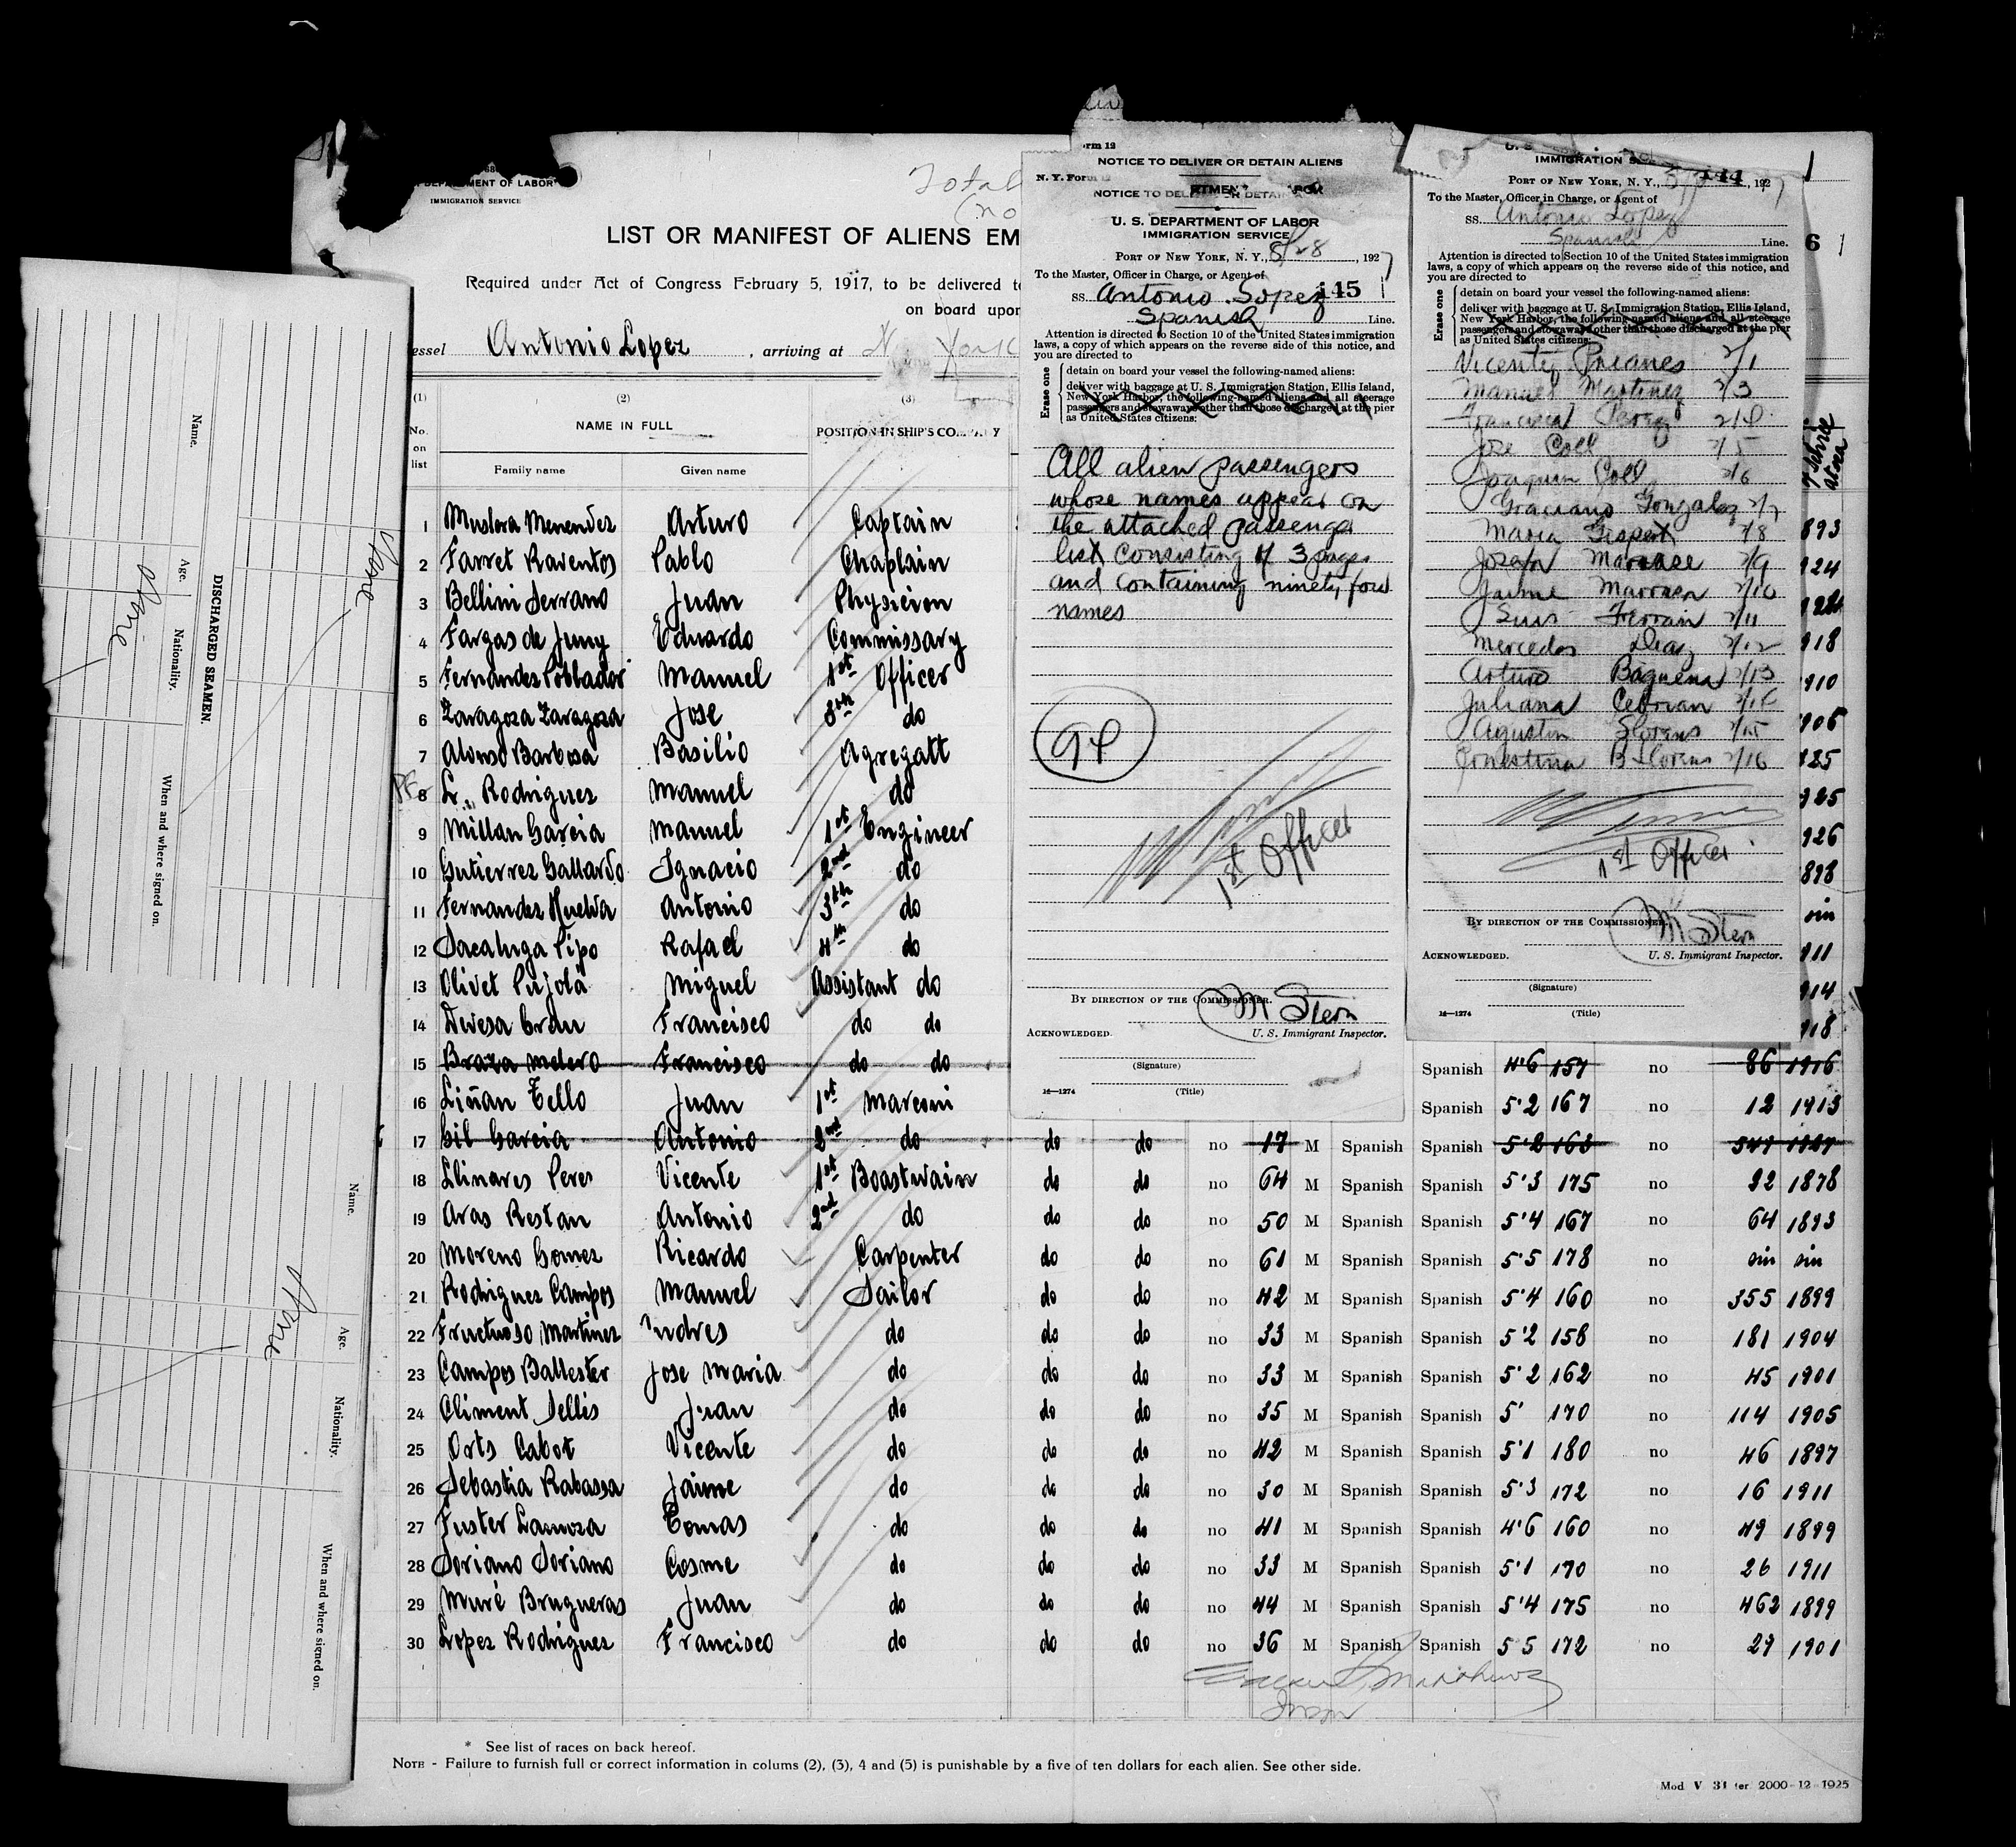 DEPARTMENT OF LABOR
IMMIGRATION SERVICE
Total
(no
LIST OR MANIFEST OF ALIENS EM
Required under Act of Congress February 5, 1917, to be delivered to
on board upon
essel Antonio Lopez , arriving at N York
(1) (2) (3)
No. on list
NAME IN FULL
POSITION IN SHIP'S COMPANY
Family name Given name
1 Muslera Menendez Arturo Captain
2 Farret Raventos Pablo Chaplain
3 Bellini Serrano Juan Physicien
4 Fargas de Juny Eduardo Commissary
5 Fernandez Poblador Manuel 1st Officer
6 Zaragoza Zaragoza Jose 3th do
7 Alonso Barbosa Basilio Agregatt
8 L. Rodriguez Manuel do
9 Millan Garcia Manuel 1st Engineer
10 Gutierrez Gallardo Ignacio 2nd do
11 Fernandez Huelva Antonio 3th do
12 Sacaluga Pipo Rafael 4th do
13 Olivet Pujolá Miguel Assistant do
14 Devesa Cran Francisco do do
15 Braza Melero Francisco do do Spanish 4'6 157 no 86 1916
16 Liñan Tello Juan 1st Marconi Spanish 5'2 167 no 12 1913
17 Gil Garcia Antonio 2nd do do do no 17 M Spanish Spanish 5'2 163 no 547 1927
18 Llinares Peres Vicente 1st Boastwain do do no 64 M Spanish Spanish 5'3 175 no 22 1878
19 Aras Restan Antonio 2nd do do do no 50 M Spanish Spanish 5'4 167 no 64 1893
20 Moreno Gomez Ricardo Carpenter do do no 61 M Spanish Spanish 5'5 178 no sin sin
21 Rodriguez Campos Manuel Sailor do do no 42 M Spanish Spanish 5'4 160 no 355 1899
22 Fructuoso Martinez Andres do do do no 33 M Spanish Spanish 5'2 158 no 181 1904
23 Campos Ballester Jose Maria do do do no 33 M Spanish Spanish 5'2 162 no 45 1901
24 Climent Sellés Juan do do do no 35 M Spanish Spanish 5' 170 no 114 1905
25 Orts Cabot Vicente do do do no 42 M Spanish Spanish 5'1 180 no 46 1897
26 Sebastia Rabassa Jaime do do do no 30 M Spanish Spanish 5'3 172 no 16 1911
27 Fuster Lamoza Tomas do do do no 41 M Spanish Spanish 4'6 160 no 49 1899
28 Soriano Soriano Cosme do do do no 33 M Spanish Spanish 5'1 170 no 26 1911
29 Muré Brugueras Juan do do do no 44 M Spanish Spanish 5'4 175 no 462 1899
30 Lopez Rodriguez Francisco do do do no 36 M Spanish Spanish 5 5 172 no 29 1901
* See list of races on back hereof.
NOTE - Failure to furnish full or correct information in colums (2), (3), 4 and (5) is punishable by a five of ten dollars for each alien. See other side.
Mod V 31 ter 2000-12 1925
rm 12
NOTICE TO DELIVER OR DETAIN ALIENS
N. Y. Form 12
U. S. DEPARTMENT OF LABOR
IMMIGRATION SERVICE
PORT OF NEW YORK, N. Y., 5/28, 1927
To the Master, Officer in Charge, or Agent of
SS. Antonio Lopez 145
Spanish Line.
Attention is directed to Section 10 of the United States immigration
laws, a copy of which appears on the reverse side of this notice, and
you are directed to
Erase one
detain on board your vessel the following-named aliens:
deliver with baggage at U. S. Immigration Station, Ellis Island,
New York Harbor, the following-named aliens and all steerage
passengers and stowaways other than those discharged at the pier
as United States citizens:
All alien passengers
whose names appear on
the attached passenger
list consisting of 3 pages
and containing ninety four
names
94
1st Officer
BY DIRECTION OF THE COMMISSIONER.
M Stern
ACKNOWLEDGED. U. S. Immigrant Inspector.
(Signature)
14—1274 (Title)
IMMIGRATION
PORT OF NEW YORK, N. Y., 144, 1927
To the Master, Officer in Charge, or Agent of
SS. Antonio Lopez
Spanish Line.
Attention is directed to Section 10 of the United States immigration
laws, a copy of which appears on the reverse side of this notice, and
you are directed to
Erase one
detain on board your vessel the following-named aliens:
deliver with baggage at U. S. Immigration Station, Ellis Island,
New York Harbor, the following-named aliens and all steerage
passengers and stowaways other than those discharged at the pier
as United States citizens:
Vicente 2/1
Manuel Martinez 2/3
Francisca Perez 2/4
Jose Coll 2/5
Joaquin Coll 2/6
Graciano Gonzalez 2/7
Maria Gispert 2/8
Josefa 2/9
Jaime 2/10
Luis Ferrain 2/11
Mercedes Diaz 2/12
Arturo Baguena 2/13
Juliana Cebrian 2/14
Agustin Llorens 2/15
Ernestina B Llorens 2/16
1st Officer
BY DIRECTION OF THE COMMISSIONER.
M Stern
ACKNOWLEDGED. U. S. Immigrant Inspector.
(Signature)
14—1274 (Title)
6
893
924
918
910
905
925
925
926
898
sin
911
914
918
DISCHARGED SEAMEN.
Name. Age. Nationality. When and where signed on.
None
None
Name. Age. Nationality. When and where signed on.
None